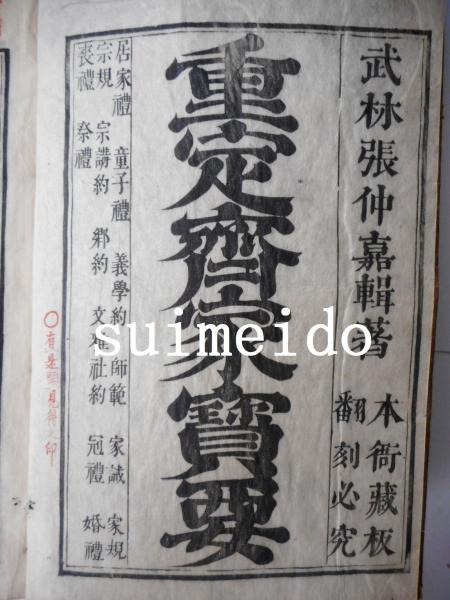 武林張仲嘉輯著
本衙藏板
翻刻必究
重定齊家寶要
居家禮 童子禮 義學約 師範 家誡 家規
宗規 宗講約 鄉約 文雅社約 冠禮 婚禮
喪禮 祭禮
suimeido